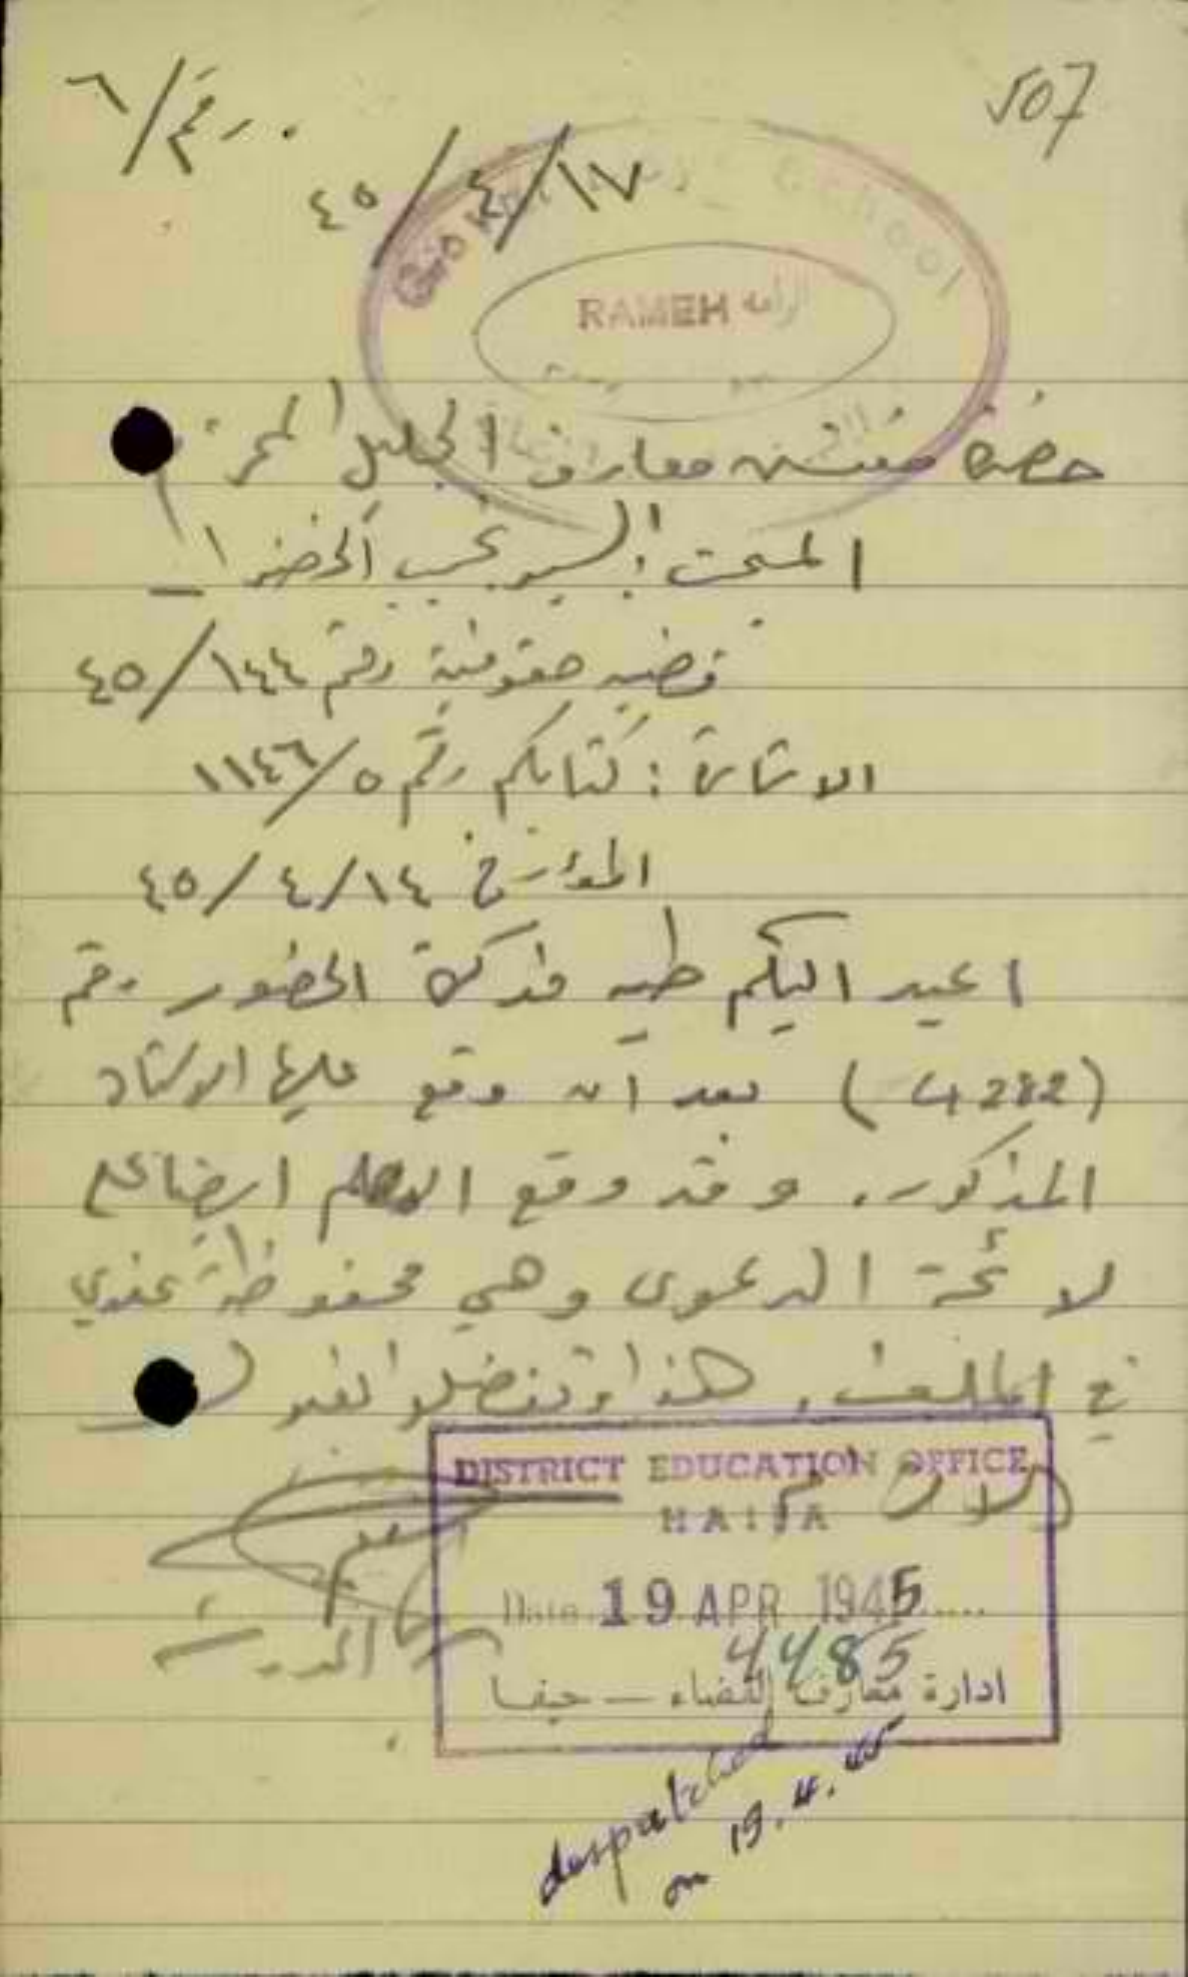 507
رقم/٦
١٧/٤/٤٥
School
RAMEH الرامه
حضرة مفتش معارف الجليل المحترم
المبحث: السيد نجيب الخضرا
قضيه حقوقية رقم ١٤٤/٤٥
الاشارة: كتابكم رقم ٥/١١٤٦
المؤرخ ١٤/٤/٤٥
اعيد اليكم طيه مذكرة الحضور رقم
(4282) بعد ان وقع عليها الاستاذ
المذكور. وقد وقع المعلم ايضا على
لائحة الدعوى وهي محفوظة عندي
في الملف. هذا وتفضلوا بقبول
الاحترام
المدرسة
DISTRICT EDUCATION OFFICE
HAIFA
Date 19 APR 1945
4485
ادارة معارف القضاء — حيفا
despatched
on 19.4.45